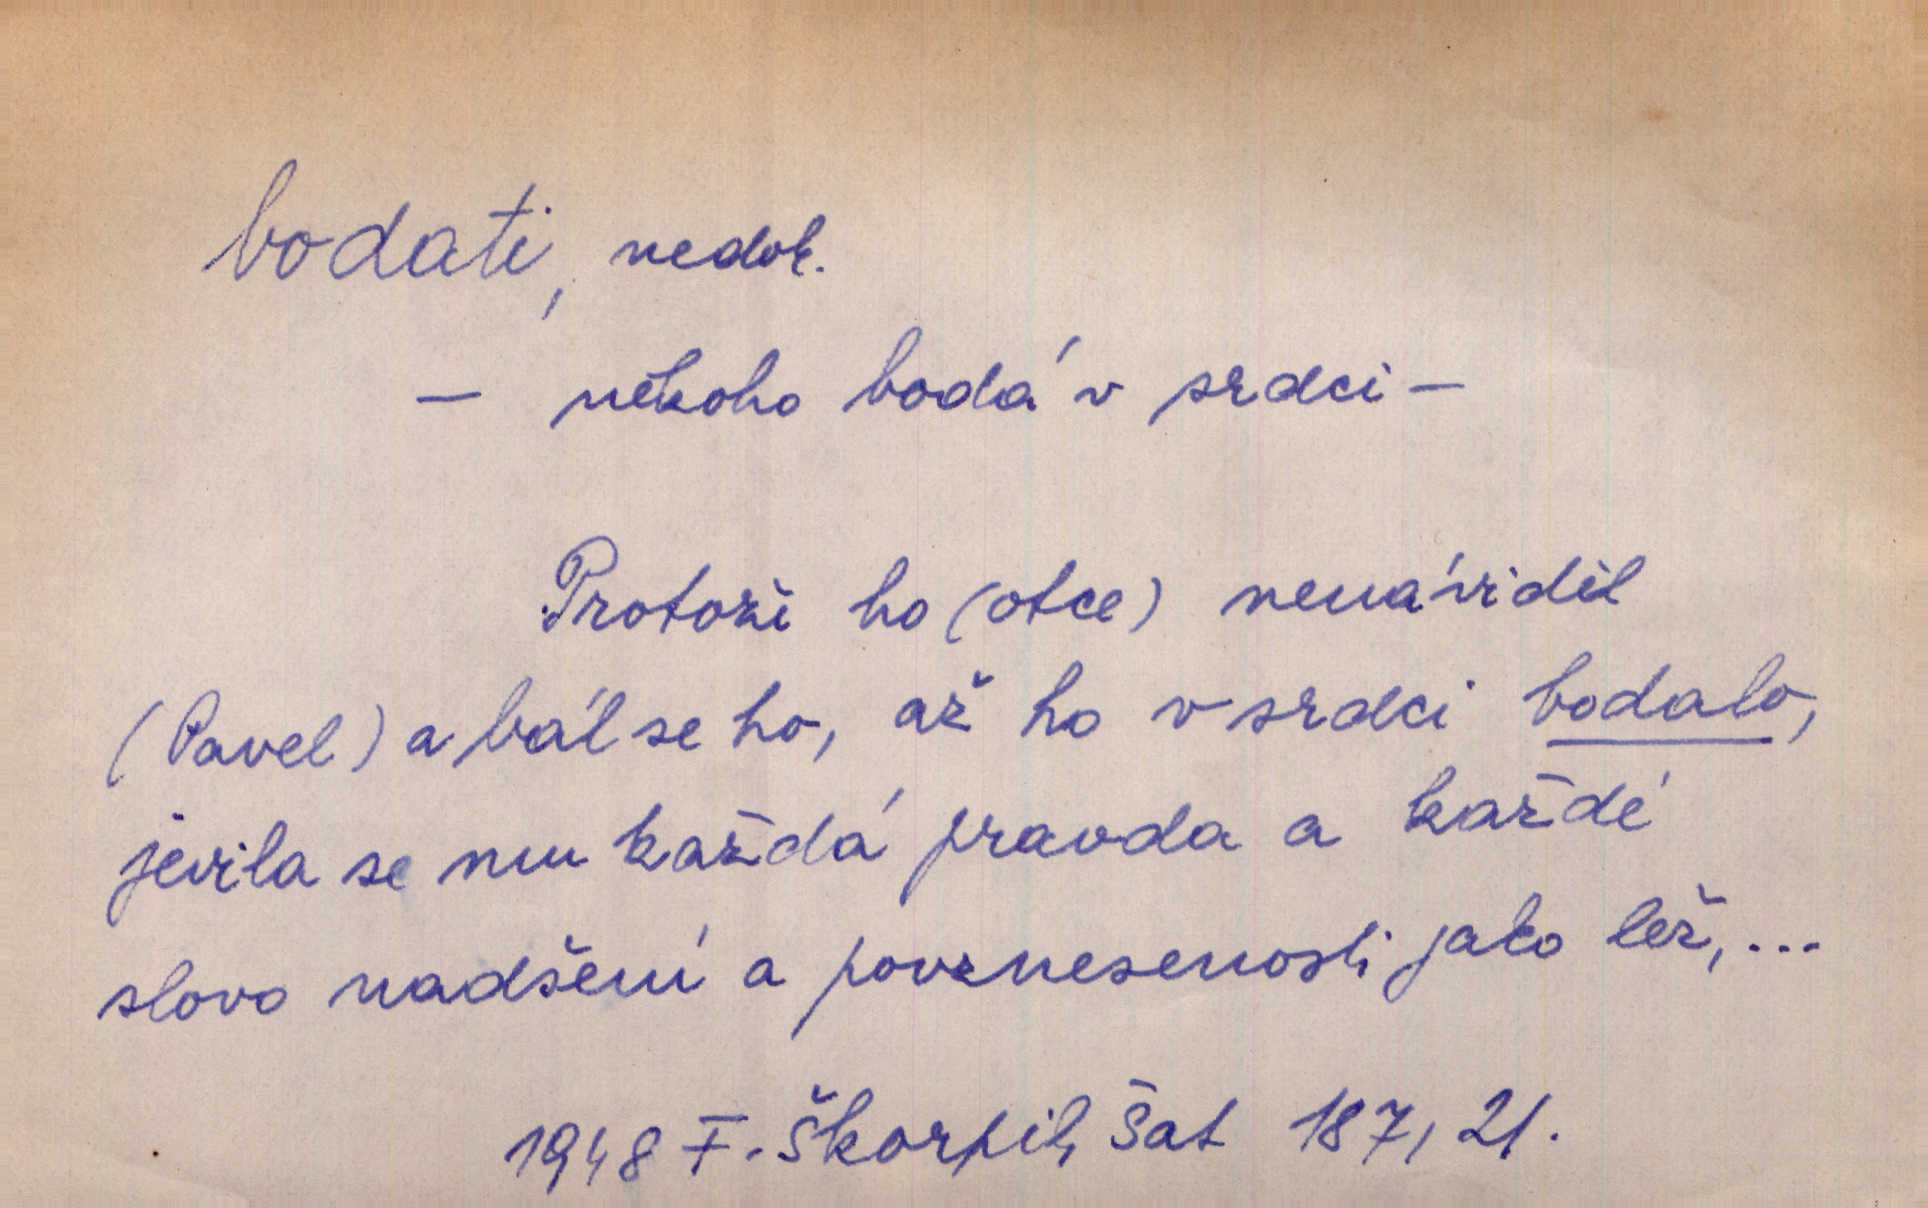 bodati, nedok.
— někoho bodá v srdci —
Protože ho (otce) nenáviděl
(Pavel) a bál se ho, až ho v srdci bodalo,
jevila se mu každá pravda a každé
slovo nadšení a povznesenosti jako lež, ...
1948 F. Škorpil, Šat 187, 21.